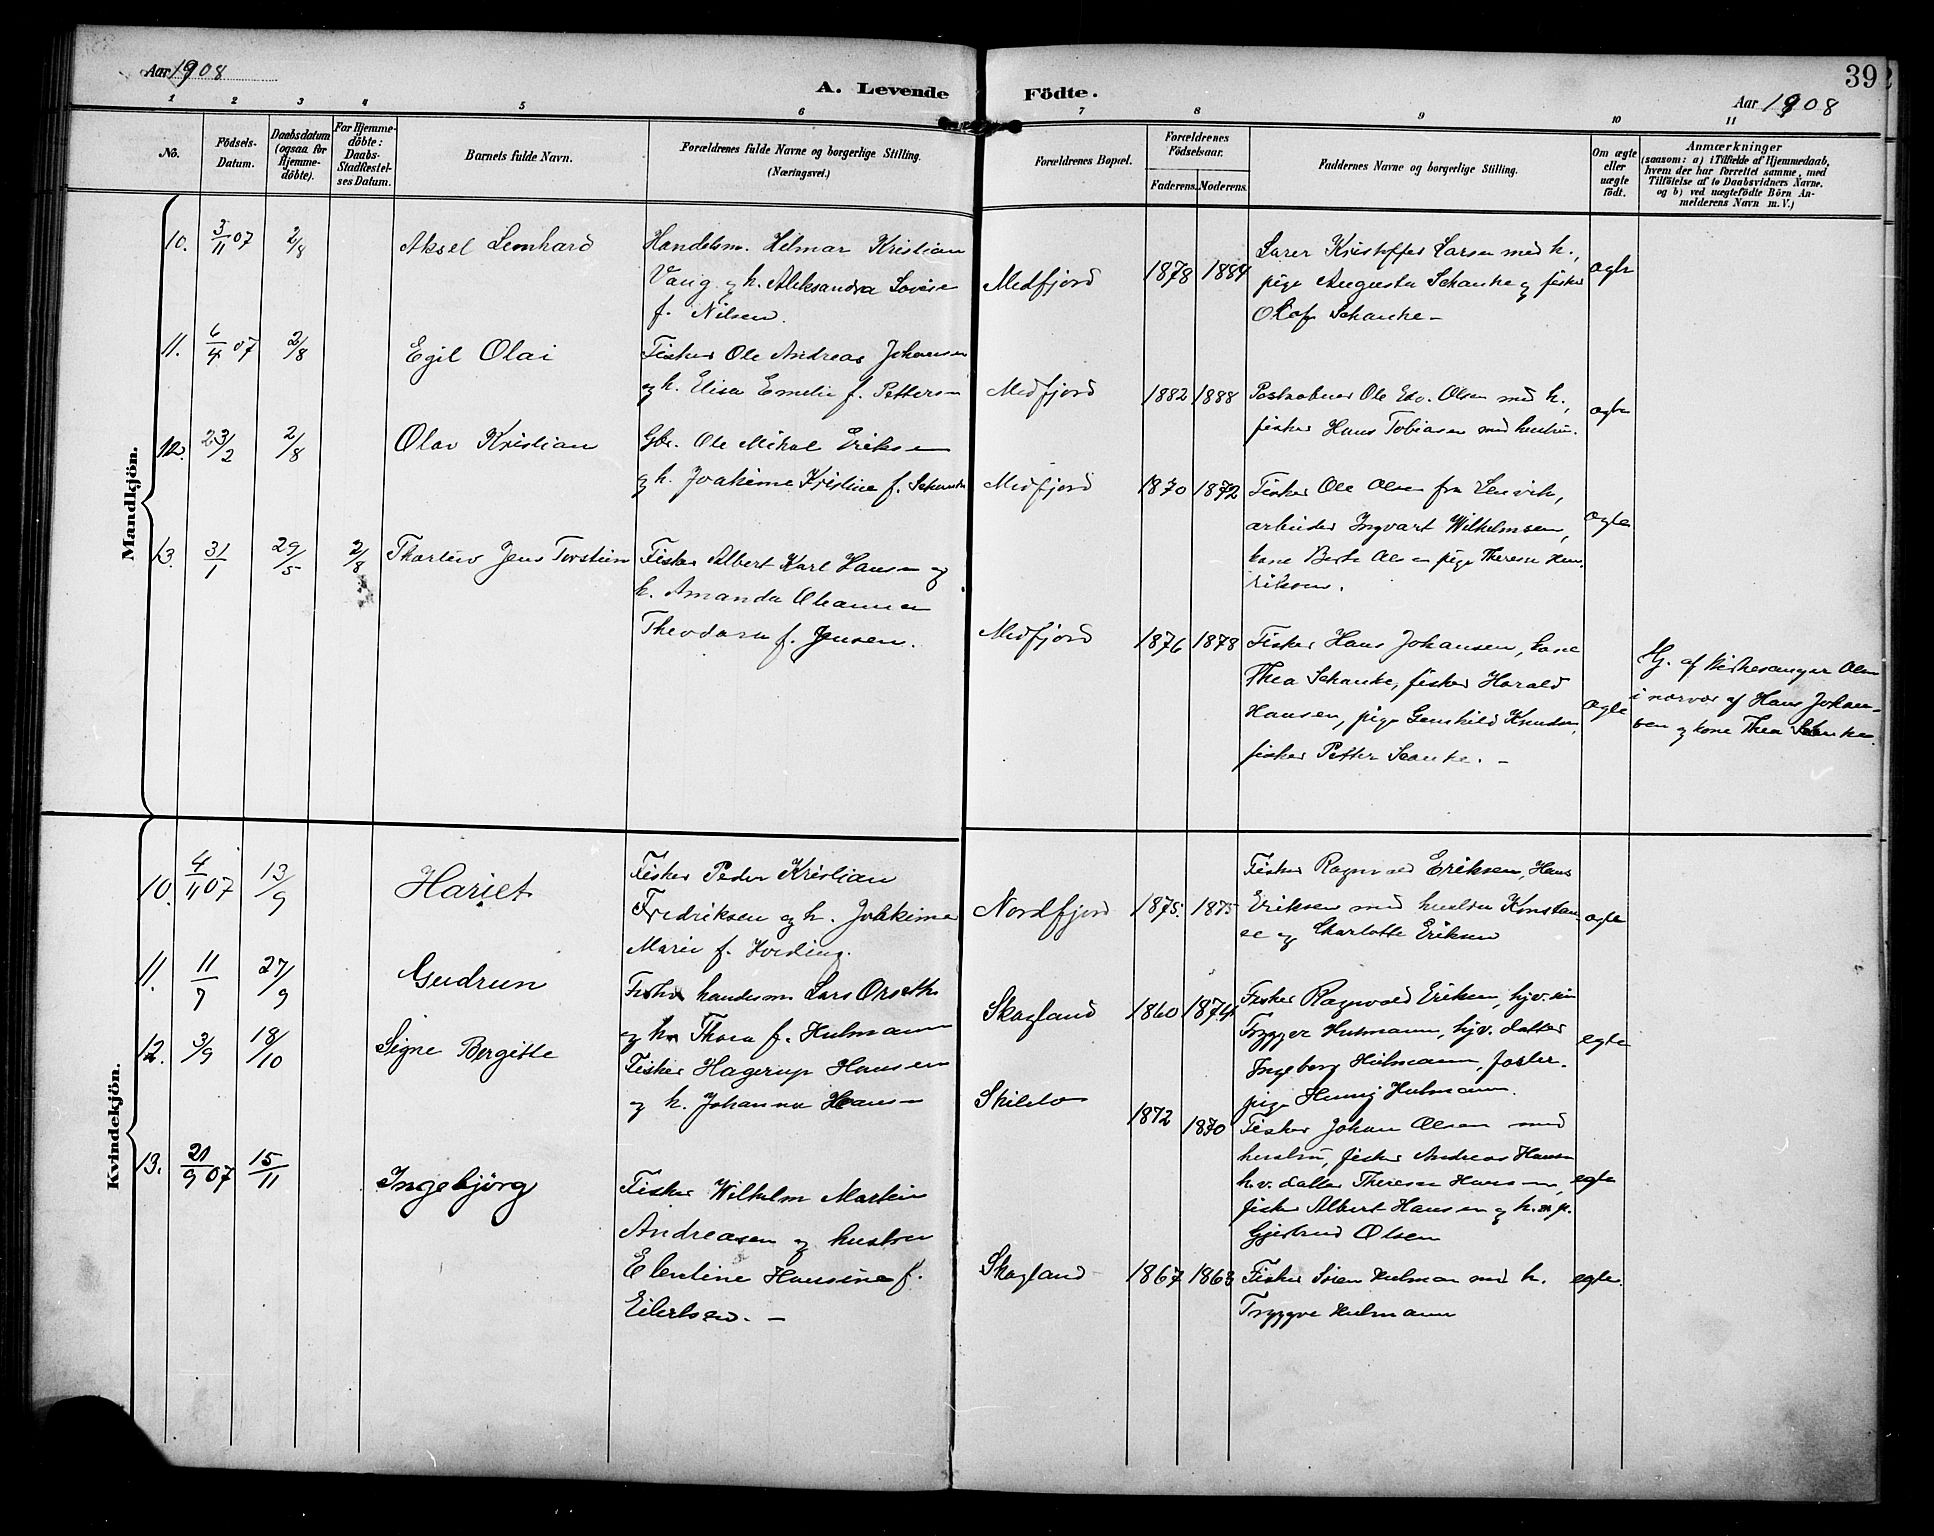 Aar 1908
A. Levende Födte.
39
Aar 1908
1 2 3 4 5 6 7 8 9 10 11
No.
Födsels-Datum.
Daabsdatum (ogsaa for Hjemme-döbte).
For Hjemme-döbte: Daabs-Stadfæstel-ses Datum.
Barnets fulde Navn.
Forældrenes fulde Navne og borgerlige Stilling. (Næringsvei.)
Forældrenes Bopæl.
Forældrenes Födselsaar.
Faderens. Moderens.
Faddernes Navne og borgerlige Stilling.
Om ægte eller uægte födt.
Anmærkninger
(saasom: a) i Tilfælde af Hjemmedaab,
hvem der har forrettet samme, med
Tilföielse af to Daabsvidners Navne,
og b) ved uægtefödte Börn An-
melderens Navn m. V.)
Mandkjön.
10. 3/11 07 2/8 Aksel Leonhard
Handelsm. Hilmar Kristian
Vang og h. Aleksandra Lovise
f. Nilsen.
Medfjord 1878 1884
Lærer Kristoffer Larsen med h.,
pige Augusta Schanke og fisker
Olaf Schanke –
ægte
11. 6/4 07 2/8 Egil Olai
Fisker Ole Andreas Johansen
og h. Elisa Emelie f. Pettersen
Medfjord 1882 1888
Postaabner Ole Edv. Olsen med h.,
fisker Hans Tobiasen med hustru.
ægte
12. 23/2 2/8 Olav Kristian
Gbr. Ole Mikal Eriksen
og h. Joakime Kristine f. Schanke
Medfjord 1870 1872
Fisker Ole Olsen fra Lenvik,
arbeider Ingvart Wilhelmsen,
kone Berte Olsen pige Therese Hen-
riksen.
ægte
13. 31/1 29/5 2/8 Thorleiv Jens Torstein
Fisker Albert Karl Hansen og
h. Amanda Oleanna
Theodora f. Jensen.
Medfjord 1876 1878
Fisker Hans Johansen, kone
Thea Schanke, fisker Harald
Hansen, pige Gunhild Knudsen,
fisker Petter Scanke. –
ægte
Hj. af kirkesanger Olsen
i nærvær af Hans Johan-
sen og kone Thea Schanke.
Kvindekjön.
10. 4/11 07 13/9 Hariet
Fisker Peder Kristian
Fredriksen og h. Joakime
Marie f. Hveding.
Nordfjord 1875. 1875
Fisker Ragnvald Eriksen, Hans
Eriksen med hustru Konstan-
se og Charlotte Eriksen
ægte
11. 11/7 27/9 Gudrun
handelsm. Lars Orseth
og h. Thora f. Hulmann
Skagland 1860 1874
Fisker Ragnvald Eriksen, hjv. søn
Trygve Hulmann, hjv. datter
Ingeborg Hulmann, foster-
pige Hulmann.
egte
12. 3/9 18/10 Signe Bergitte
Fisker Hagerup Hansen
og h. Johanna Hansen
1872 1870
Fisker Johan Olsen med
hustru, fisker Andreas Hansen
h.v. datter Therese Hansen,
fisker Albert Hansen og
Gjertrud Olsen
egte
13. 21/9 07 15/11 Ingebjörg
Fisker Wilhelm Martin
Andreasen og hustru
Elentine Hansine f.
Eilertsen. –
Skagland 1867 1863
Fisker Sören Hulman med h.
Tryggve Hulmann
egte.